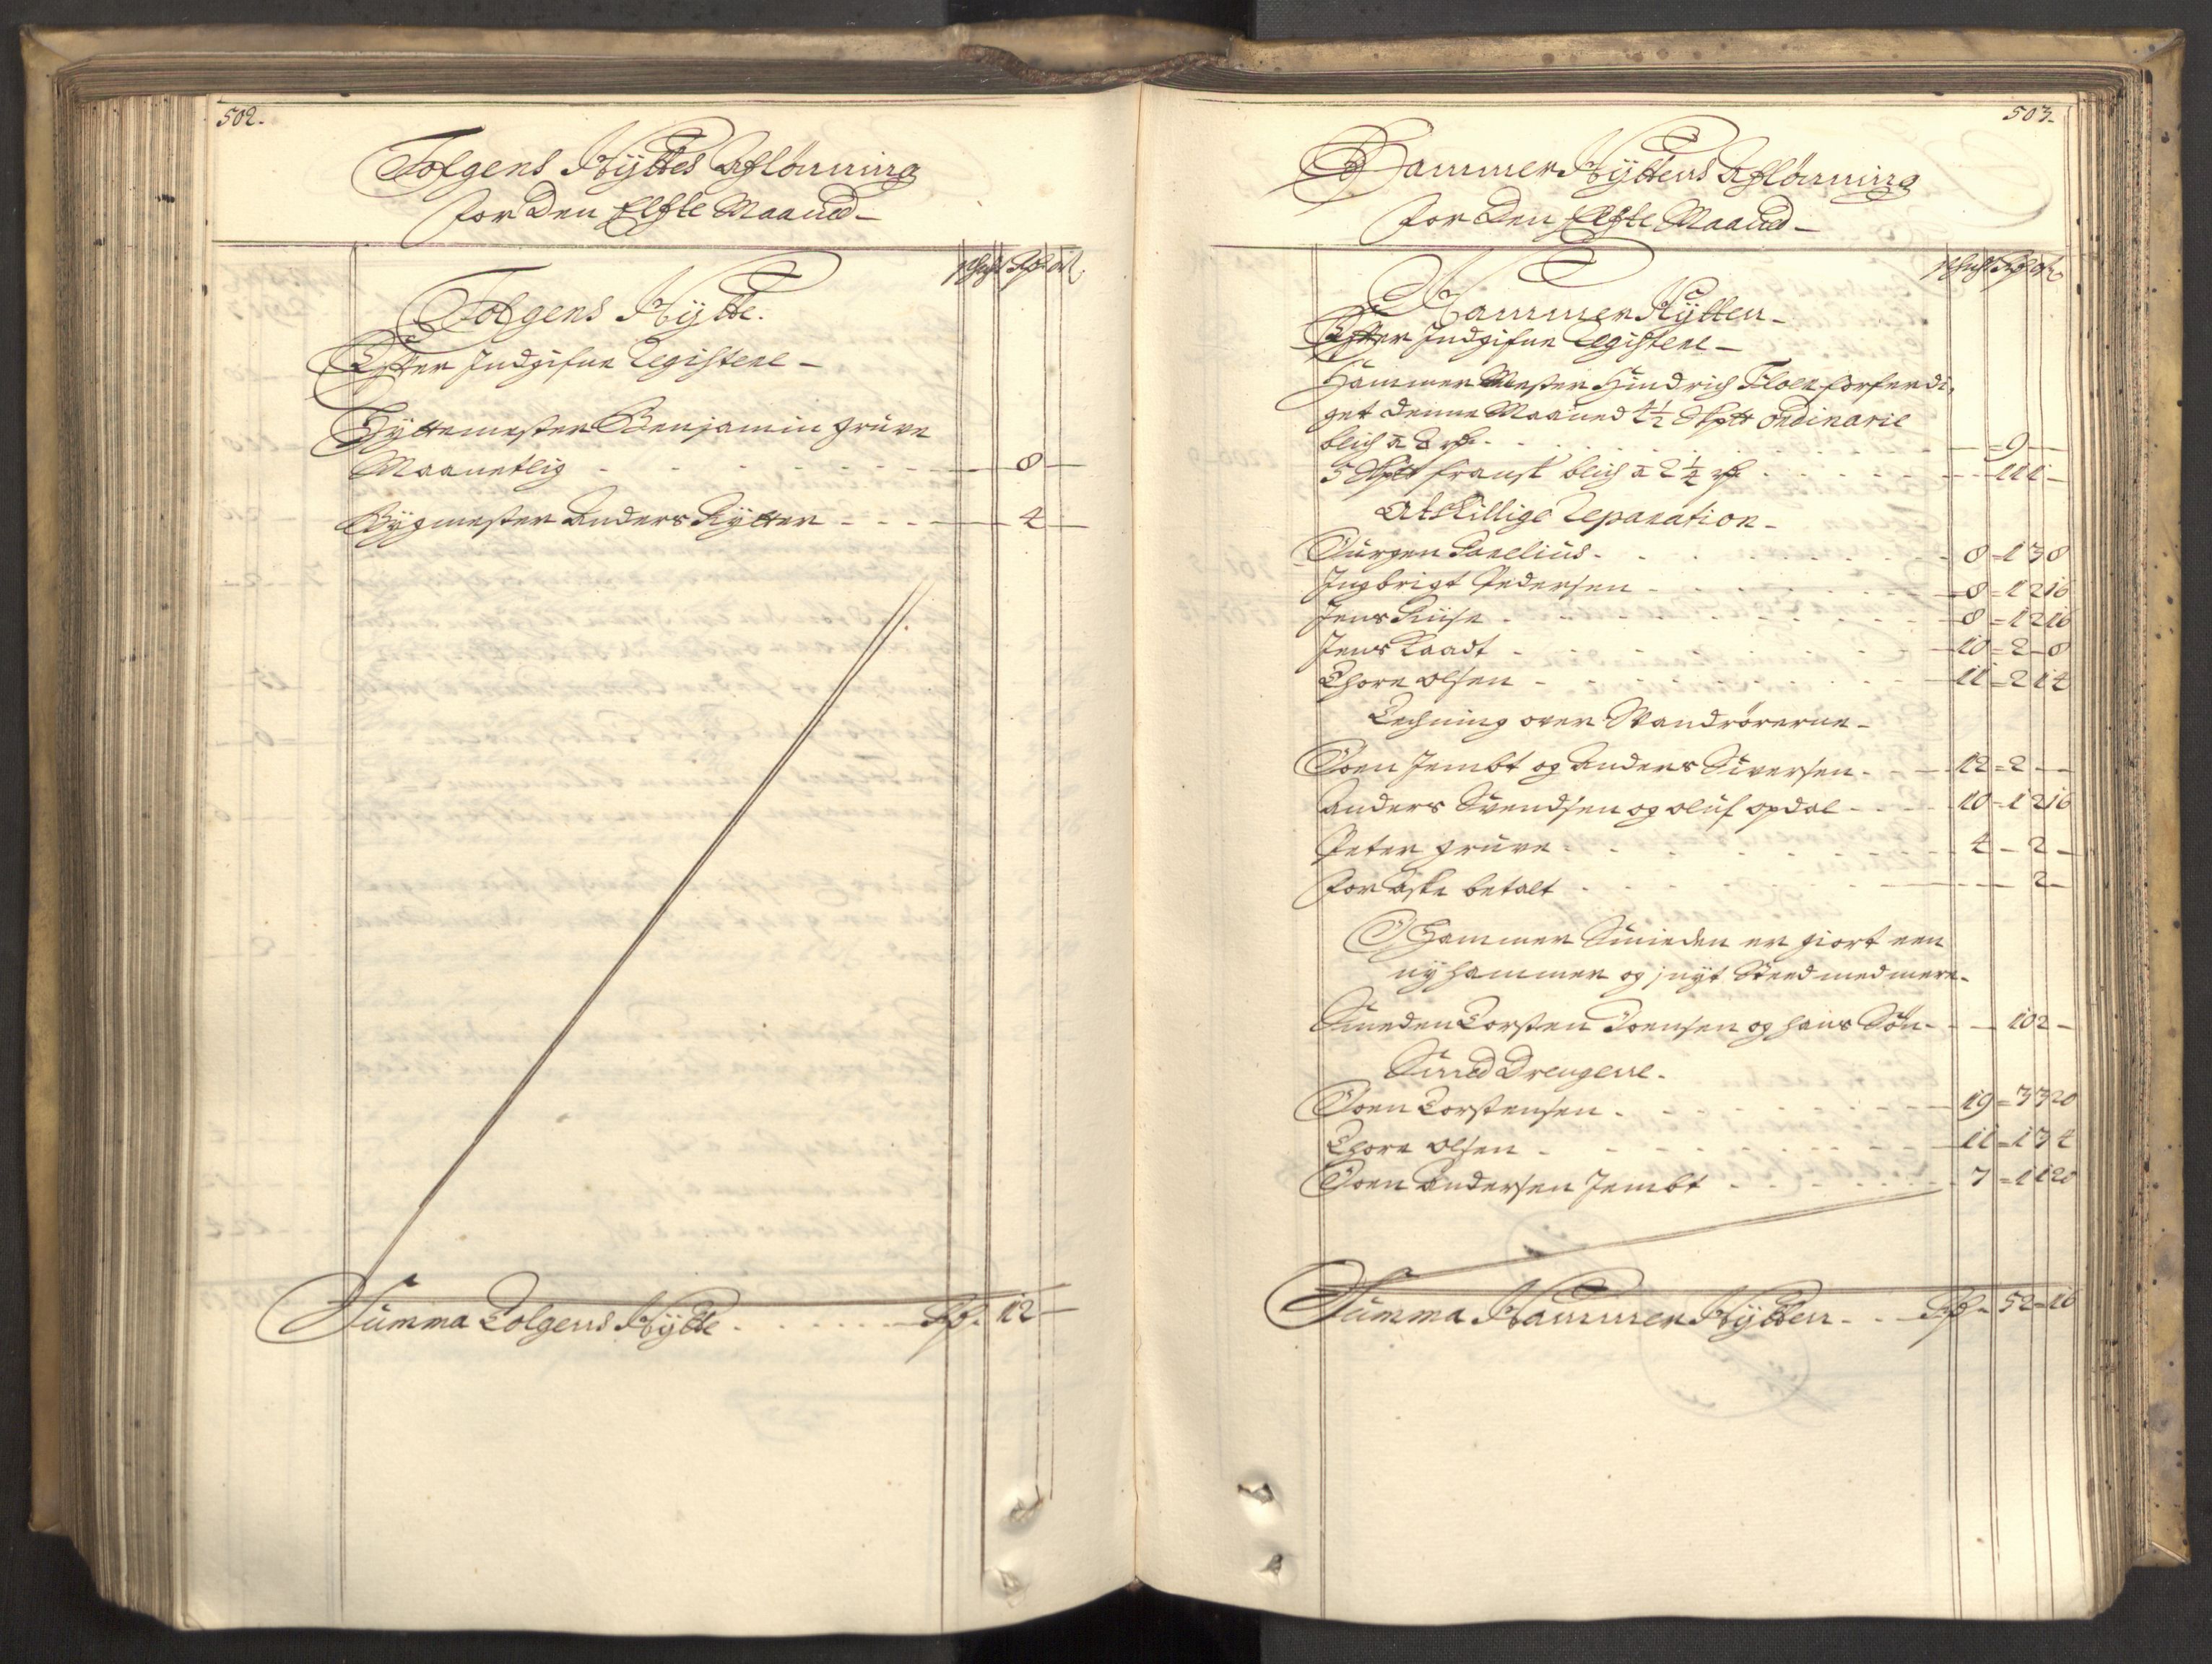 502.
Tolgens Hyttes Aflönning
for Den Elfte Maaned
Tolgens Hytte.
Efter Indgifne Registere
Hyttemester Benjamin Grüve
Maanetlig - - - 8 -
Bygmester Anders Rytter - - - 4 -
Summa Tolgens Hytte - - - Rdr. 12 -
503.
Hammer Hyttens Aflönning
for Den Elfte Maaned
Hammer Hytten
Efter Indgifne Registere
Hammer Mester Hindrich Floer forferdi,
get denne Maaned 4½ Skptt ordinarie
blich a 2 rdr - - - 9 -
5 Skptt fransk blich a 2¼ rdr - - - 11 1 -
Atskillige Reparation
Jürgen - - - 8 = 1 3 8
Ingbrigt Pedersen - - - 8 = 1 2 16
Jens - - - 8 = 1 2 16
Jens Raadt - - - 10 = 2 - 8
Thore Olsen - - - 11 = 2 1 4
Techning over Wandrörerne
Joen Jembt og Anders Siversen - - - 12 = 2 - -
Anders Svendsen og Oluf Opdal - - - 10 = 1 2 16
Peter Grüve - - - 4 - 2 -
For Aske betalt - - - 2 -
I Hammer Smieden er giort een
ny hammer og j nyt Steed med mere.
Smeden Torsten Joensen og hans Sön - - - 10 2 -
Smed Drengene.
Joen Torstensen - - - 19 = 3 3 20
Thore Olsen - - - 11 = 1 3 4
Joen Andersen Jembt - - - 7 = 1 1 20
Summa Hammer Hytten - - - Rdr - 52 = 16